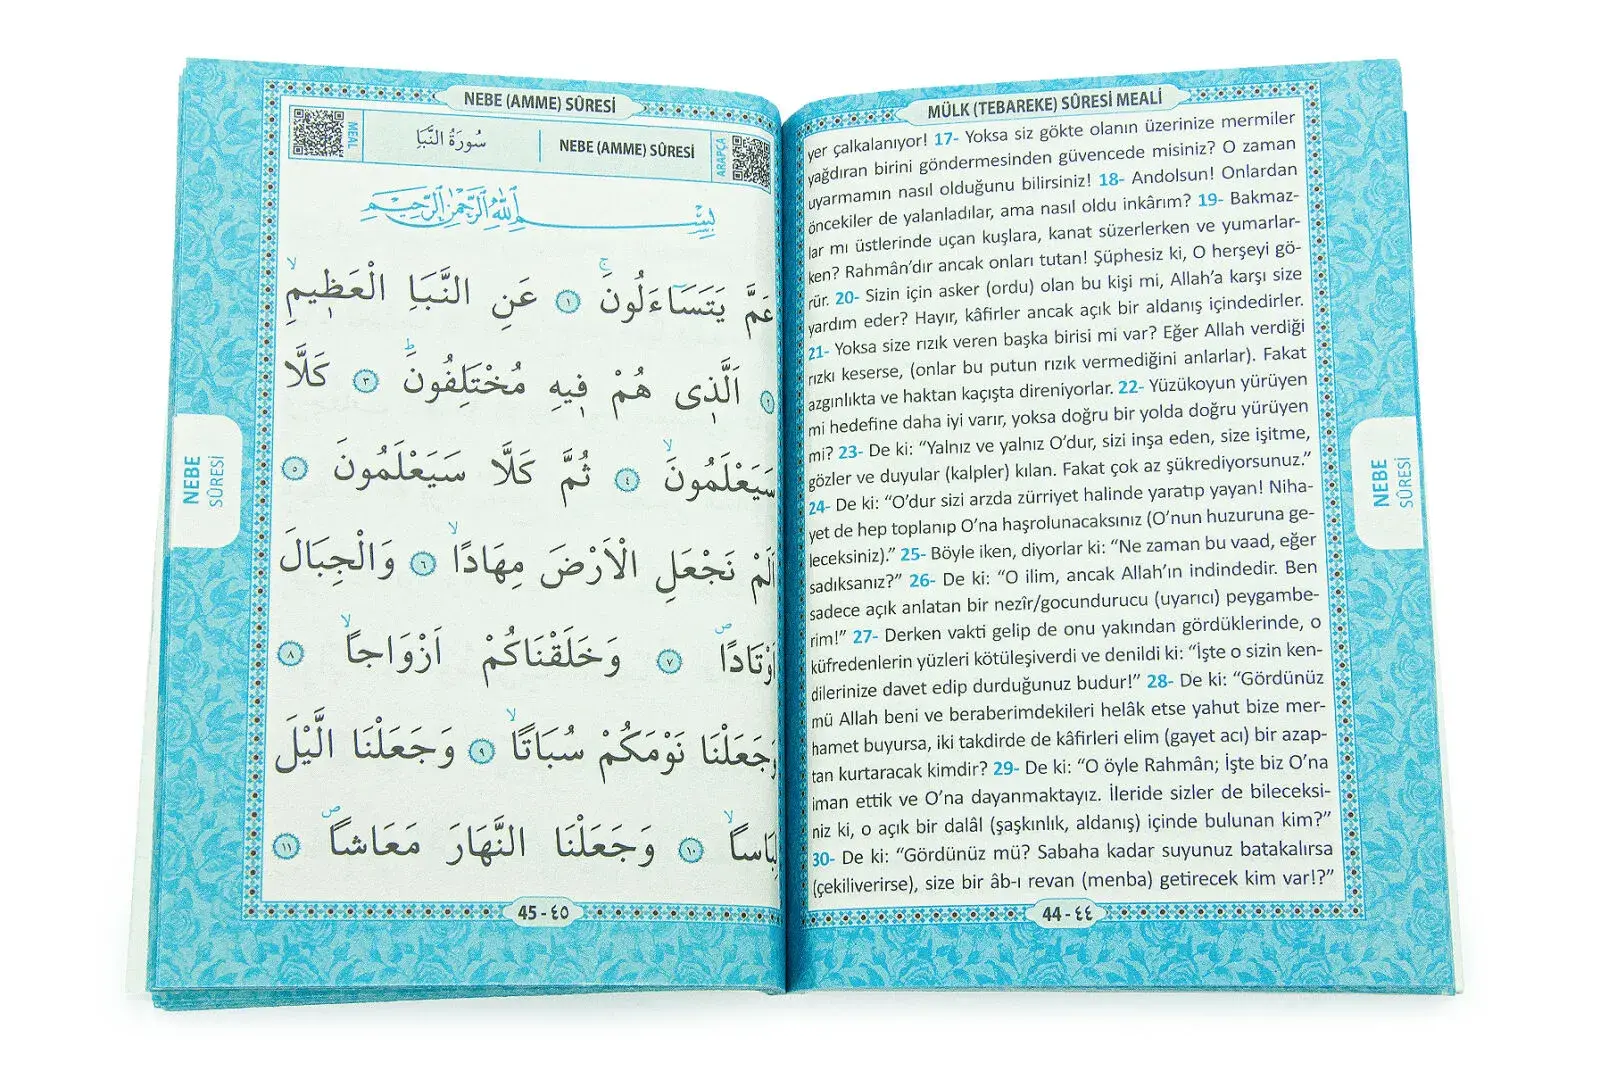 NEBE (AMME) SÛRESİ
MEAL
سُورَةُ النَّبَأِ
NEBE (AMME) SÛRESİ
ARAPÇA
بِسْمِ اللّٰهِ الرَّحْمٰنِ الرَّحِيمِ
عَمَّ يَتَسَٓاءَلُونَۚ ﴿١﴾ عَنِ النَّبَأِ الْعَظ۪يمِۙ
﴿٢﴾ اَلَّذ۪ي هُمْ ف۪يهِ مُخْتَلِفُونَۜ ﴿٣﴾ كَلَّا
سَيَعْلَمُونَۙ ﴿٤﴾ ثُمَّ كَلَّا سَيَعْلَمُونَ ﴿٥﴾
اَلَمْ نَجْعَلِ الْاَرْضَ مِهَادًاۙ ﴿٦﴾ وَالْجِبَالَ
اَوْتَادًاۖ ﴿٧﴾ وَخَلَقْنَاكُمْ اَزْوَاجًاۙ ﴿٨﴾
وَجَعَلْنَا نَوْمَكُمْ سُبَاتًاۙ ﴿٩﴾ وَجَعَلْنَا الَّيْلَ
لِبَاسًاۙ ﴿١٠﴾ وَجَعَلْنَا النَّهَارَ مَعَاشًاۖ ﴿١١﴾
45 - ٤٥
NEBE
SÛRESİ
MÜLK (TEBAREKE) SÛRESİ MEALİ
yer çalkalanıyor! 17- Yoksa siz gökte olanın üzerinize mermiler
yağdıran birini göndermesinden güvencede misiniz? O zaman
uyarmamın nasıl olduğunu bilirsiniz! 18- Andolsun! Onlardan
öncekiler de yalanladılar, ama nasıl oldu inkârım? 19- Bakmaz-
lar mı üstlerinde uçan kuşlara, kanat süzerlerken ve yumarlar-
ken? Rahmân’dır ancak onları tutan! Şüphesiz ki, O herşeyi gö-
rür. 20- Sizin için asker (ordu) olan bu kişi mi, Allah’a karşı size
yardım eder? Hayır, kâfirler ancak açık bir aldanış içindedirler.
21- Yoksa size rızık veren başka birisi mi var? Eğer Allah verdiği
rızkı keserse, (onlar bu putun rızık vermediğini anlarlar). Fakat
azgınlıkta ve haktan kaçışta direniyorlar. 22- Yüzükoyun yürüyen
mi hedefine daha iyi varır, yoksa doğru bir yolda doğru yürüyen
mi? 23- De ki: “Yalnız ve yalnız O’dur, sizi inşa eden, size işitme,
gözler ve duyular (kalpler) kılan. Fakat çok az şükrediyorsunuz.”
24- De ki: “O’dur sizi arzda zürriyet halinde yaratıp yayan! Niha-
yet de hep toplanıp O’na haşrolunacaksınız (O’nun huzuruna ge-
leceksiniz).” 25- Böyle iken, diyorlar ki: “Ne zaman bu vaad, eğer
sadıksanız?” 26- De ki: “O ilim, ancak Allah’ın indindedir. Ben
sadece açık anlatan bir nezîr/gocundurucu (uyarıcı) peygambe-
rim!” 27- Derken vakti gelip de onu yakından gördüklerinde, o
küfredenlerin yüzleri kötüleşiverdi ve denildi ki: “İşte o sizin ken-
dilerinize davet edip durduğunuz budur!” 28- De ki: “Gördünüz
mü Allah beni ve beraberimdekileri helâk etse yahut bize mer-
hamet buyursa, iki takdirde de kâfirleri elim (gayet acı) bir azap-
tan kurtaracak kimdir? 29- De ki: “O öyle Rahmân; İşte biz O’na
iman ettik ve O’na dayanmaktayız. İleride sizler de bileceksi-
niz ki, o açık bir dalâl (şaşkınlık, aldanış) içinde bulunan kim?”
30- De ki: “Gördünüz mü? Sabaha kadar suyunuz batakalırsa
(çekiliverirse), size bir âb-ı revan (menba) getirecek kim var!?”
44 - ٤٤
NEBE
SÛRESİ